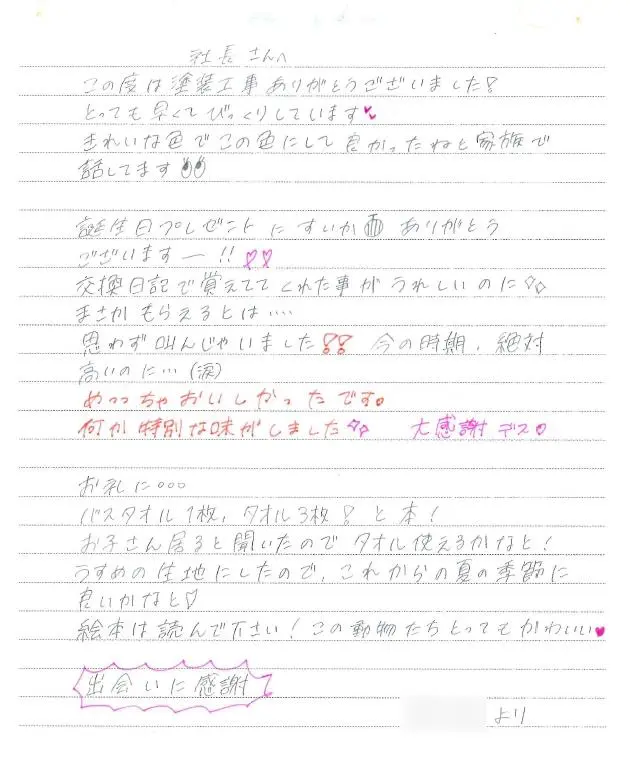 社長さんへ
この度は塗装工事ありがとうございました!
とっても早くてびっくりしています
きれいな色でこの色にして良かったねと家族で
話してます
誕生日プレゼントにすいか ありがとう
ございますー!!
交換日記で覚えててくれた事がうれしいのに
まさかもらえるとは····
思わず叫んじゃいました!! 今の時期、絶対
高いのに…(涙)
めっっちゃおいしかったです。
何か特別な味がしました 大感謝デス
お礼に。。。
バスタオル1枚,タオル3枚!と本!
お子さん居ると聞いたのでタオル使えるかなと!
うすめの生地にしたので、これからの夏の季節に
良いかなと♡
絵本は読んで下さい!この動物たちとってもかわいい♥
出会いに感謝
より